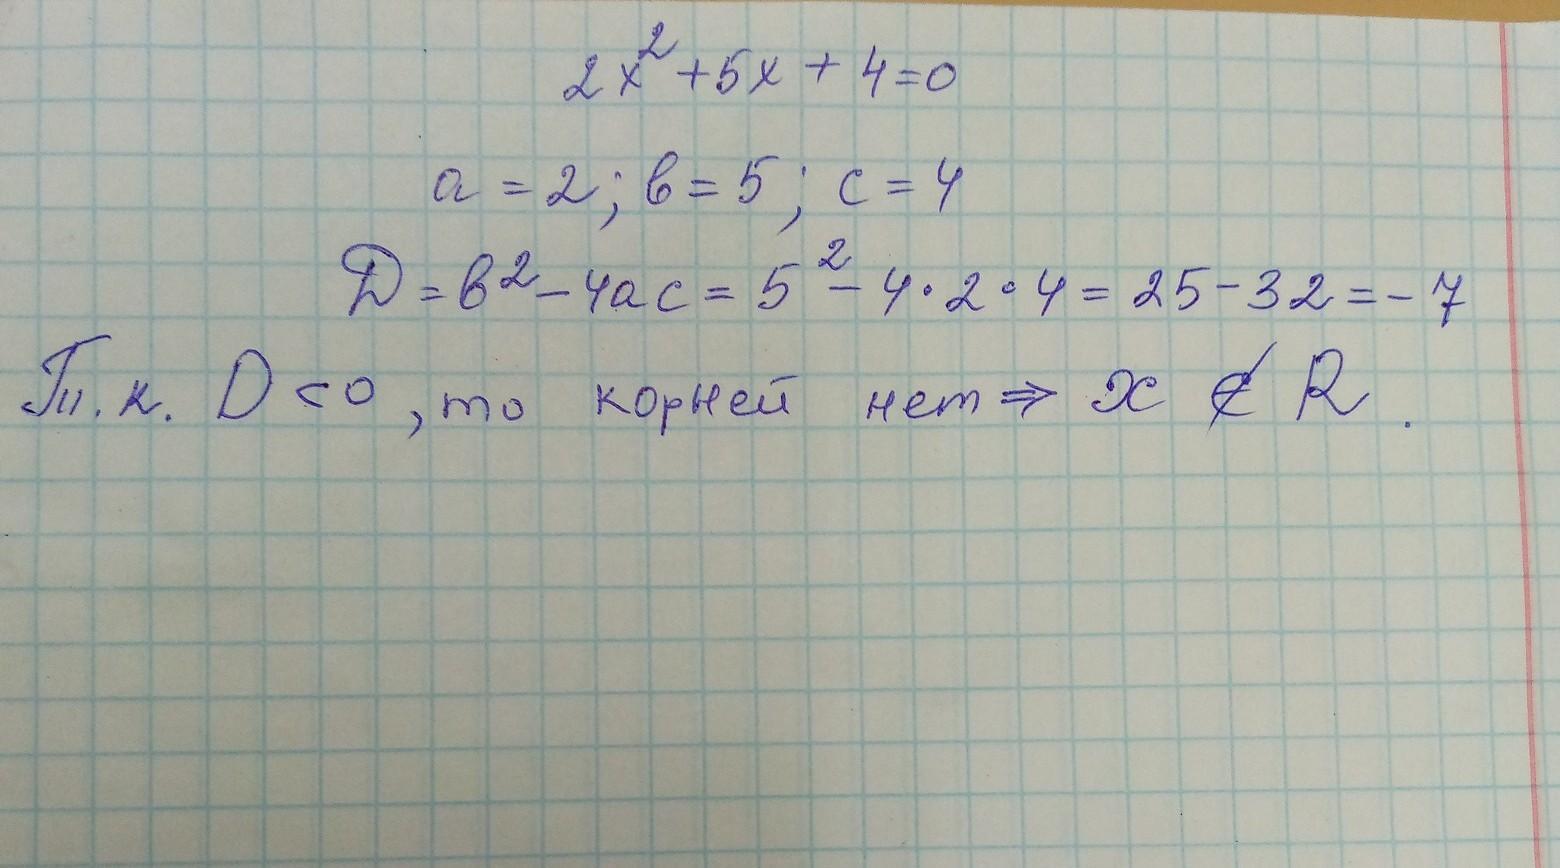 2x²+5x+4=0
a=2; в=5; c=4
D=в²-4ac=5²-4·2·4=25-32=-7
Т.к. D<0, то корней нет⇒ x ∉ R.